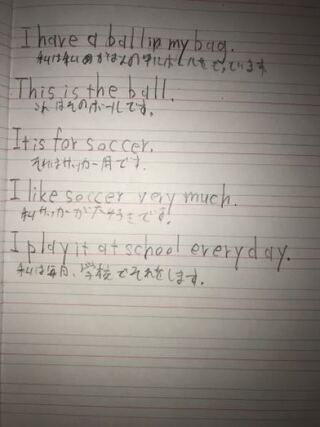 I have a ball in my bag.
私は私のかばんの中にボールをもっています
This is the ball.
これはそのボールです。
It is for soccer.
それはサッカー用です.
I like soccer very much.
私サッカーが大すきです!
I play it at school everyday.
私は毎日、学校でそれをします.